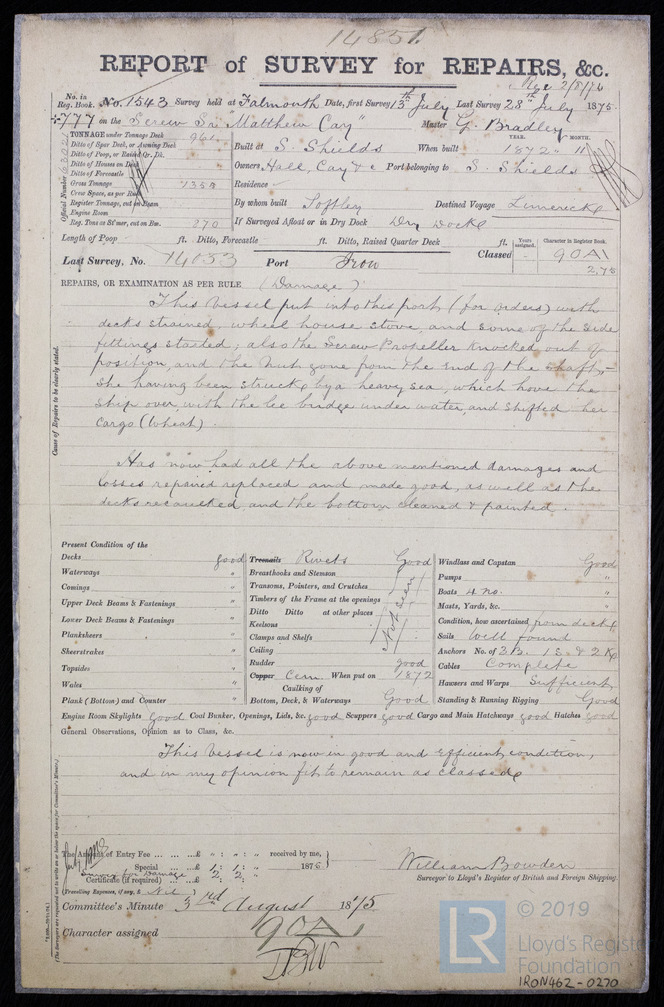 14851
REPORT of SURVEY for REPAIRS, &c.
Rec 2/8/75
No. in Reg. Book. No. 1543 Survey held at Falmouth Date, first Survey 13th July Last Survey 28th July 1875
777 on the Screw Sr "Matthew Cay" Master G. Bradley
TONNAGE under Tonnage Deck 961
Ditto of Spar Deck, or Awning Deck
Ditto of Poop, or Raised Qr. Dk.
Ditto of Houses on Deck
Ditto of Forecastle
Gross Tonnage 1359
Crew Space, as per Rule
Register Tonnage, cut on Beam
Engine Room
Reg. Tons as St'mer, cut on Bm. 870
Official Number 63021
YEAR. MONTH.
Built at S. Shields When built 1872 11
Owners Hall, Cay & Co Port belonging to S. Shields
Residence
By whom built Softley Destined Voyage Limerick
If Surveyed Afloat or in Dry Dock Dry Dock
Length of Poop ft. Ditto, Forecastle ft. Ditto, Raised Quarter Deck ft.
Years assigned. Character in Register Book.
Last Survey, No. 14033 Port Iron Classed 90A1
2,75
REPAIRS, OR EXAMINATION AS PER RULE (Damage)
Cause of Repairs to be clearly stated.
This Vessel put into this port (for orders) with
decks strained, wheel house stove, and some of the side
fittings started; also the Screw Propeller knocked out of
position, and the Nut gone from the end of the shaft,
she having been struck by a heavy sea, which hove the
ship over, with the lee bridge under water, and shifted her
cargo (Wheat).
Has now had all the above mentioned damages and
losses repaired replaced and made good, as well as the
decks recaulked and the bottom cleaned & painted.
Present Condition of the
Decks good
Waterways "
Comings "
Upper Deck Beams & Fastenings "
Lower Deck Beams & Fastenings "
Planksheers "
Sheerstrakes "
Topsides "
Wales "
Plank (Bottom) and Counter "
Treenails Rivets Good
Breasthooks and Stemson
Transoms, Pointers, and Crutches
Timbers of the Frame at the openings
Ditto Ditto at other places
Keelsons
Clamps and Shelfs
Ceiling
Not seen
Rudder good
Copper Cem. When put on 1872
Caulking of
Bottom, Deck, & Waterways Good
Windlass and Capstan Good
Pumps "
Boats 4 no. "
Masts, Yards, &c. "
Condition, how ascertained from deck
Sails Well found
Anchors No. of 3 B. 1 S. & 2 K
Cables Complete
Hawsers and Warps Sufficient
Standing & Running Rigging Good
Engine Room Skylights good Coal Bunker, Openings, Lids, &c. good Scuppers good Cargo and Main Hatchways good Hatches good
General Observations, Opinion as to Class, &c.
This Vessel is now in good and efficient condition,
and in my opinion fit to remain as classed
The Amount of Entry Fee £ " : " : " received by me,
Special £ 1 : 1 : " 1875
Survey for Damage
Certificate (if required) £
(Travelling Expenses, if any, £ Nil)
William Bowden
Surveyor to Lloyd's Register of British and Foreign Shipping.
Committee's Minute 3rd August 1875
Character assigned 90A1
© 2019
LR
Lloyd's Register
Foundation
IRON462-0270